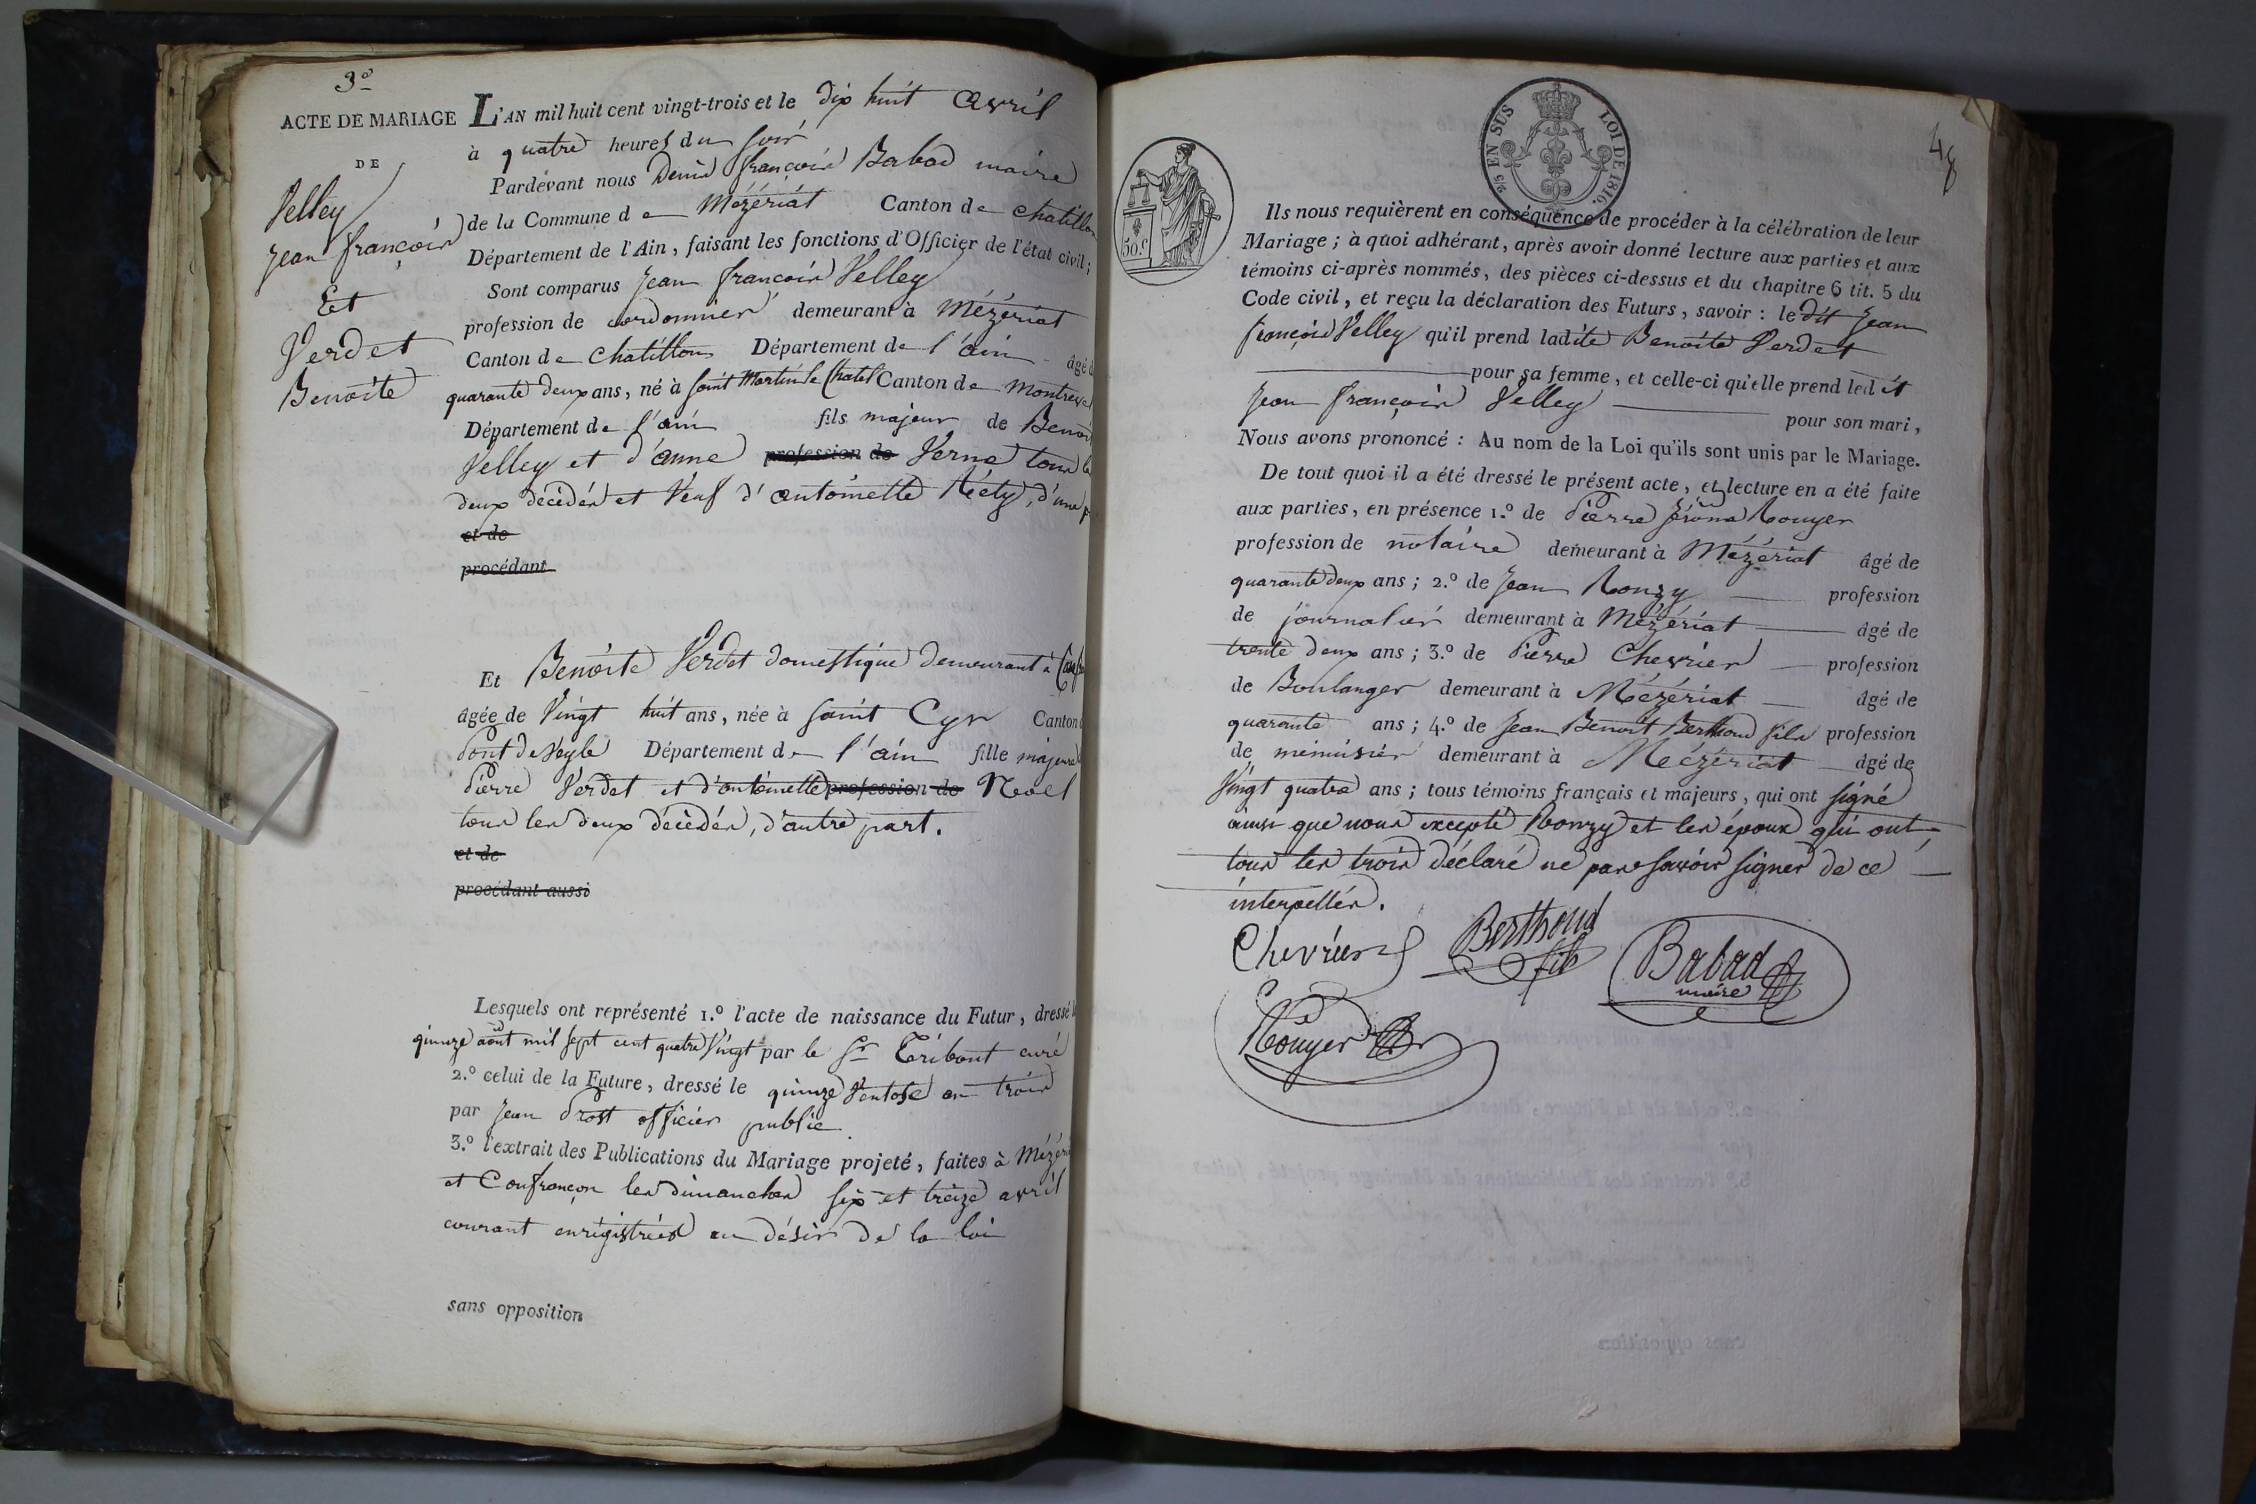 3°
ACTE DE MARIAGE
DE
Velley
Jean françois
Et
Verdet
Benoite
L'AN mil huit cent vingt-trois et le dix huit avril
à quatre heures du soir
Pardevant nous Denis françois Babad maire
de la Commune de Mézériat Canton de chatillon
Département de l'Ain, faisant les fonctions d'Officier de l'état civil;
Sont comparus Jean françois Velley
profession de cordonnier demeurant à Mézériat
Canton de chatillon Département de l'ain âgé d
quarante deux ans, né à Saint Martin le Chatel Canton de Montrevel
Département de l'ain fils majeur de Benoit
Velley et d'anne profession de Verne tous les
deux décédés et Veuf d'antoinette , d'une p
et de
procédant
Et Benoite Verdet domestique demeurant à
âgée de Vingt huit ans, née à Saint Cyr Canton d
Pont de Veyle Département de l'ain fille majeure d
Pierre Verdet et d'antoinette profession de Noel
tous les deux décédés, d'autre part.
et de
procédant aussi
Lesquels ont représenté 1.° l'acte de naissance du Futur, dressé l
quinze août mil sept cent quatre Vingt par le Sr Tribout curé
2.° celui de la Future, dressé le quinze Ventose an trois
par Jean Prost officier public
3.° l'extrait des Publications du Mariage projeté, faites à Mézéri
et Confrançon les dimanches six et treize avril
courant enrégistrées au désir de la loi
sans opposition
2/5 EN SUS LOI DE 1816.
50.c
48
Ils nous requièrent en conséquence de procéder à la célébration de leur
Mariage; à quoi adhérant, après avoir donné lecture aux parties et aux
témoins ci-après nommés, des pièces ci-dessus et du chapitre 6 tit. 5 du
Code civil, et reçu la déclaration des Futurs, savoir: le dit Jean
françois Velley qu'il prend ladite Benoite Verdet
pour sa femme, et celle-ci qu'elle prend ledit
Jean françois Velley pour son mari,
Nous avons prononcé: Au nom de la Loi qu'ils sont unis par le Mariage.
De tout quoi il a été dressé le présent acte, et lecture en a été faite
aux parties, en présence 1.° de Pierre Jérôme Rouyer
profession de notaire demeurant à Mézériat âgé de
quarante deux ans; 2.° de Jean Ronzy profession
de journalier demeurant à Mézériat âgé de
trente deux ans; 3.° de Pierre Chevrier profession
de Boulanger demeurant à Mézériat âgé de
quarante ans; 4.° de Jean Benoit Berthoud fils profession
de menuisier demeurant à Mézériat âgé de
Vingt quatre ans; tous témoins français et majeurs, qui ont signé
ainsi que nous excepté Ronzy et les époux qui ont
tous les trois déclaré ne pas savoir signer de ce
interpellés.
Chevrier
Berthoud
fils
Babad
maire
Rouyer